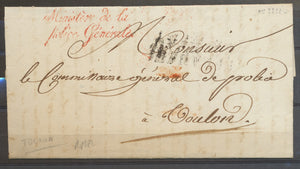 Ministère de la
Police Générale
Monsieur
le Commissaire général de police
à Toulon